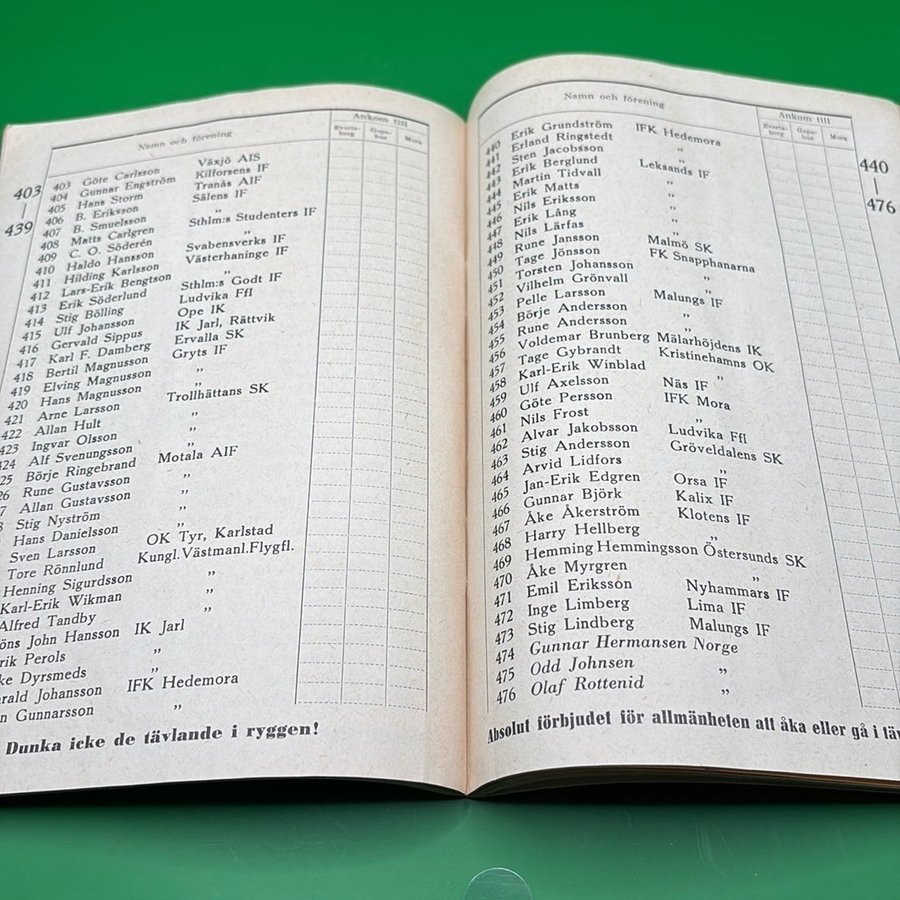 Namn och förening Ankom till
Evertsberg Gopshus Mora
403
|
439
403 Göte Carlsson Växjö AIS
404 Gunnar Engström Kilforsens IF
405 Hans Storm Tranås AIF
406 B. Eriksson Sälens IF
407 B. Smuelsson ,,
408 Matts Carlgren Sthlm:s Studenters IF
409 C. O. Söderén ,,
410 Haldo Hansson Svabensverks IF
411 Hilding Karlsson Västerhaninge IF
412 Lars-Erik Bengtson ,,
413 Erik Söderlund Sthlm:s Godt IF
414 Stig Bölling Ludvika Ffl
415 Ulf Johansson Ope IK
416 Gervald Sippus IK Jarl, Rättvik
417 Karl F. Damberg Ervalla SK
418 Bertil Magnusson Gryts IF
419 Elving Magnusson ,,
420 Hans Magnusson ,,
421 Arne Larsson Trollhättans SK
422 Allan Hult ,,
423 Ingvar Olsson ,,
424 Alf Svenungsson ,,
25 Börje Ringebrand Motala AIF
26 Rune Gustavsson ,,
7 Allan Gustavsson ,,
8 Stig Nyström ,,
Hans Danielsson ,,
Sven Larsson OK Tyr, Karlstad
Tore Rönnlund Kungl.Västmanl.Flygfl.
Henning Sigurdsson ,,
Karl-Erik Wikman ,,
Alfred Tandby ,,
öns John Hansson IK Jarl
rik Perols ,,
ke Dyrsmeds ,,
arald Johansson IFK Hedemora
n Gunnarsson ,,
Dunka icke de tävlande i ryggen!
Namn och förening Ankom till
Evertsberg Gopshus Mora
440
|
476
440 Erik Grundström IFK Hedemora
441 Erland Ringstedt ,,
442 Sten Jacobsson ,,
443 Erik Berglund Leksands IF
444 Martin Tidvall ,,
445 Erik Matts ,,
446 Nils Eriksson ,,
447 Erik Lång ,,
448 Nils Lärfas ,,
449 Rune Jansson Malmö SK
450 Tage Jönsson FK Snapphanarna
451 Torsten Johansson ,,
452 Vilhelm Grönvall ,,
453 Pelle Larsson Malungs IF
454 Börje Andersson ,,
455 Rune Andersson ,,
456 Voldemar Brunberg Mälarhöjdens IK
457 Tage Gybrandt Kristinehamns OK
458 Karl-Erik Winblad ,,
459 Ulf Axelsson Näs IF
460 Göte Persson IFK Mora
461 Nils Frost ,,
462 Alvar Jakobsson Ludvika Ffl
463 Stig Andersson Gröveldalens SK
464 Arvid Lidfors ,,
465 Jan-Erik Edgren Orsa IF
466 Gunnar Björk Kalix IF
467 Åke Åkerström Klotens IF
468 Harry Hellberg ,,
469 Hemming Hemmingsson Östersunds SK
470 Åke Myrgren ,,
471 Emil Eriksson Nyhammars IF
472 Inge Limberg Lima IF
473 Stig Lindberg Malungs IF
474 Gunnar Hermansen Norge
475 Odd Johnsen ,,
476 Olaf Rottenid ,,
Absolut förbjudet för allmänheten att åka eller gå i täv